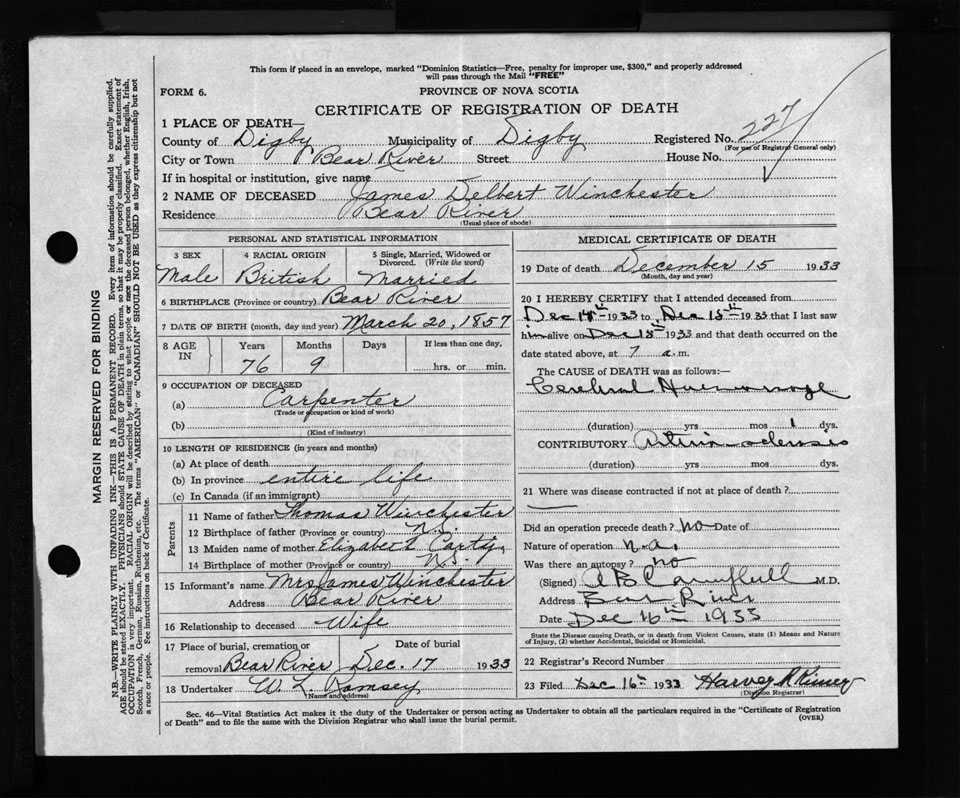 This form if placed in an envelope, marked "Dominion Statistics—Free, penalty for improper use, $300," and properly addressed
will pass through the Mail "FREE"
FORM 6.
PROVINCE OF NOVA SCOTIA
CERTIFICATE OF REGISTRATION OF DEATH
1 PLACE OF DEATH—
County of Digby Municipality of Digby Registered No. 227
(For use of Registrar General only)
City or Town Bear River Street House No.
If in hospital or institution, give name
2 NAME OF DECEASED James Delbert Winchester
Residence Bear River
(Usual place of abode)
PERSONAL AND STATISTICAL INFORMATION
3 SEX 4 RACIAL ORIGIN 5 Single, Married, Widowed or Divorced. (Write the word)
Male British Married
6 BIRTHPLACE (Province or country) Bear River
7 DATE OF BIRTH (month, day and year) March 20, 1857
8 AGE IN Years Months Days If less than one day,
76 9 hrs. or min.
9 OCCUPATION OF DECEASED
(a) Carpenter
(Trade or occupation or kind of work)
(b)
(Kind of industry)
10 LENGTH OF RESIDENCE (in years and months)
(a) At place of death
(b) In province entire life
(c) In Canada (if an immigrant)
Parents
11 Name of father Thomas Winchester
12 Birthplace of father (Province or country) N.S.
13 Maiden name of mother Elizabeth Carty
14 Birthplace of mother (Province or country) N.S.
15 Informant's name Mrs James Winchester
Address Bear River
16 Relationship to deceased Wife
17 Place of burial, cremation or removal Date of burial
Bear River Dec. 17 1933
18 Undertaker W. L. Ramsey
(Name and address)
MEDICAL CERTIFICATE OF DEATH
19 Date of death December 15 1933
(Month, day and year)
20 I HEREBY CERTIFY that I attended deceased from
Dec 14th 1933 to Dec 15th 1933 that I last saw
him alive on Dec 15th 1933 and that death occurred on the
date stated above, at 7 a.m.
The CAUSE of DEATH was as follows:—
Cerebral Haemorrhage
(duration) yrs mos 1 dys.
CONTRIBUTORY Arteriosclerosis
(duration) yrs mos dys.
21 Where was disease contracted if not at place of death?
Did an operation precede death? no Date of
Nature of operation n.a.
Was there an autopsy? no
(Signed) A B Campbell M.D.
Address Bear River
Date Dec 16th 1933
State the Disease causing Death, or in death from Violent Causes, state (1) Means and Nature
of Injury, (2) whether Accidental, Suicidal or Homicidal.
22 Registrar's Record Number
23 Filed Dec 16th 1933 Harvey R
(Division Registrar)
Sec. 46—Vital Statistics Act makes it the duty of the Undertaker or person acting as Undertaker to obtain all the particulars required in the "Certificate of Registration
of Death" and to file the same with the Division Registrar who shall issue the burial permit.
(OVER)
MARGIN RESERVED FOR BINDING
N.B.—WRITE PLAINLY WITH UNFADING INK—THIS IS A PERMANENT RECORD. Every item of information should be carefully supplied.
AGE should be stated EXACTLY. PHYSICIANS should STATE CAUSE OF DEATH in plain terms, so that it may be properly classified. Exact statement of
OCCUPATION is very important. RACIAL ORIGIN will be described by stating to what people or race the deceased person belonged, whether English, Irish,
Scotch, French, German, Russian, Ruthenian, etc. The terms "AMERICAN" or "CANADIAN" SHOULD NOT BE USED as they express citizenship but not
a race or people. See instructions on back of Certificate.